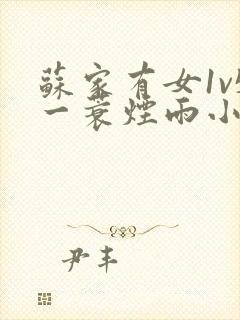 蘇家有女1v
一蓑煙雨小
尹丰